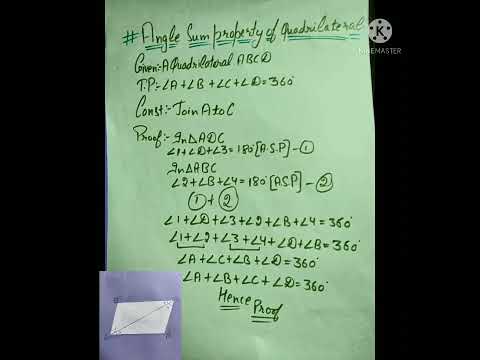 # Angle Sum property of Quadrilateral
Given:- A Quadrilateral ABCD
T.P:- ∠A+∠B+∠C+∠D=360°
Const:- Join A to C
Proof:- In △ADC
∠1+∠D+∠3=180°[A.S.P]-①
In △ABC
∠2+∠B+∠4=180°[ASP]-②
①+②
∠1+∠D+∠3+∠2+∠B+∠4=360°
∠1+∠2+∠3+∠4+∠D+∠B=360°
∠A+∠C+∠B+∠D=360°
∠A+∠B+∠C+∠D=360°
Hence Proof
K
KINEMASTER